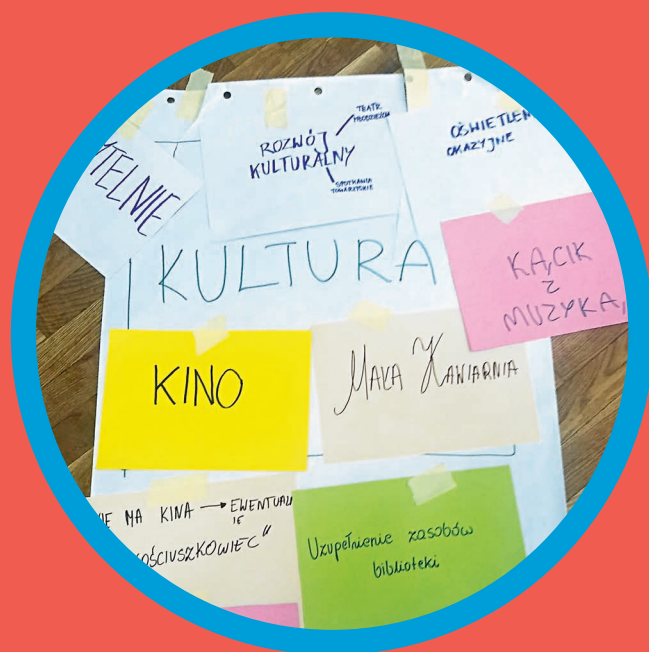 YTELNIE
ROZWÓJ
KULTURALNY
TEATR
SPOTKANIA
TOWARZYSKIE
OŚWIETLEN
OKAZYJNE
KULTURA
KĄCIK
Z
MUZYKĄ
KINO
MAŁA KAWIARNIA
IE MA KINA → EWENTUAL
IE
OŚCIUSZKOWIEC"
Uzupełnienie zasobów
biblioteki